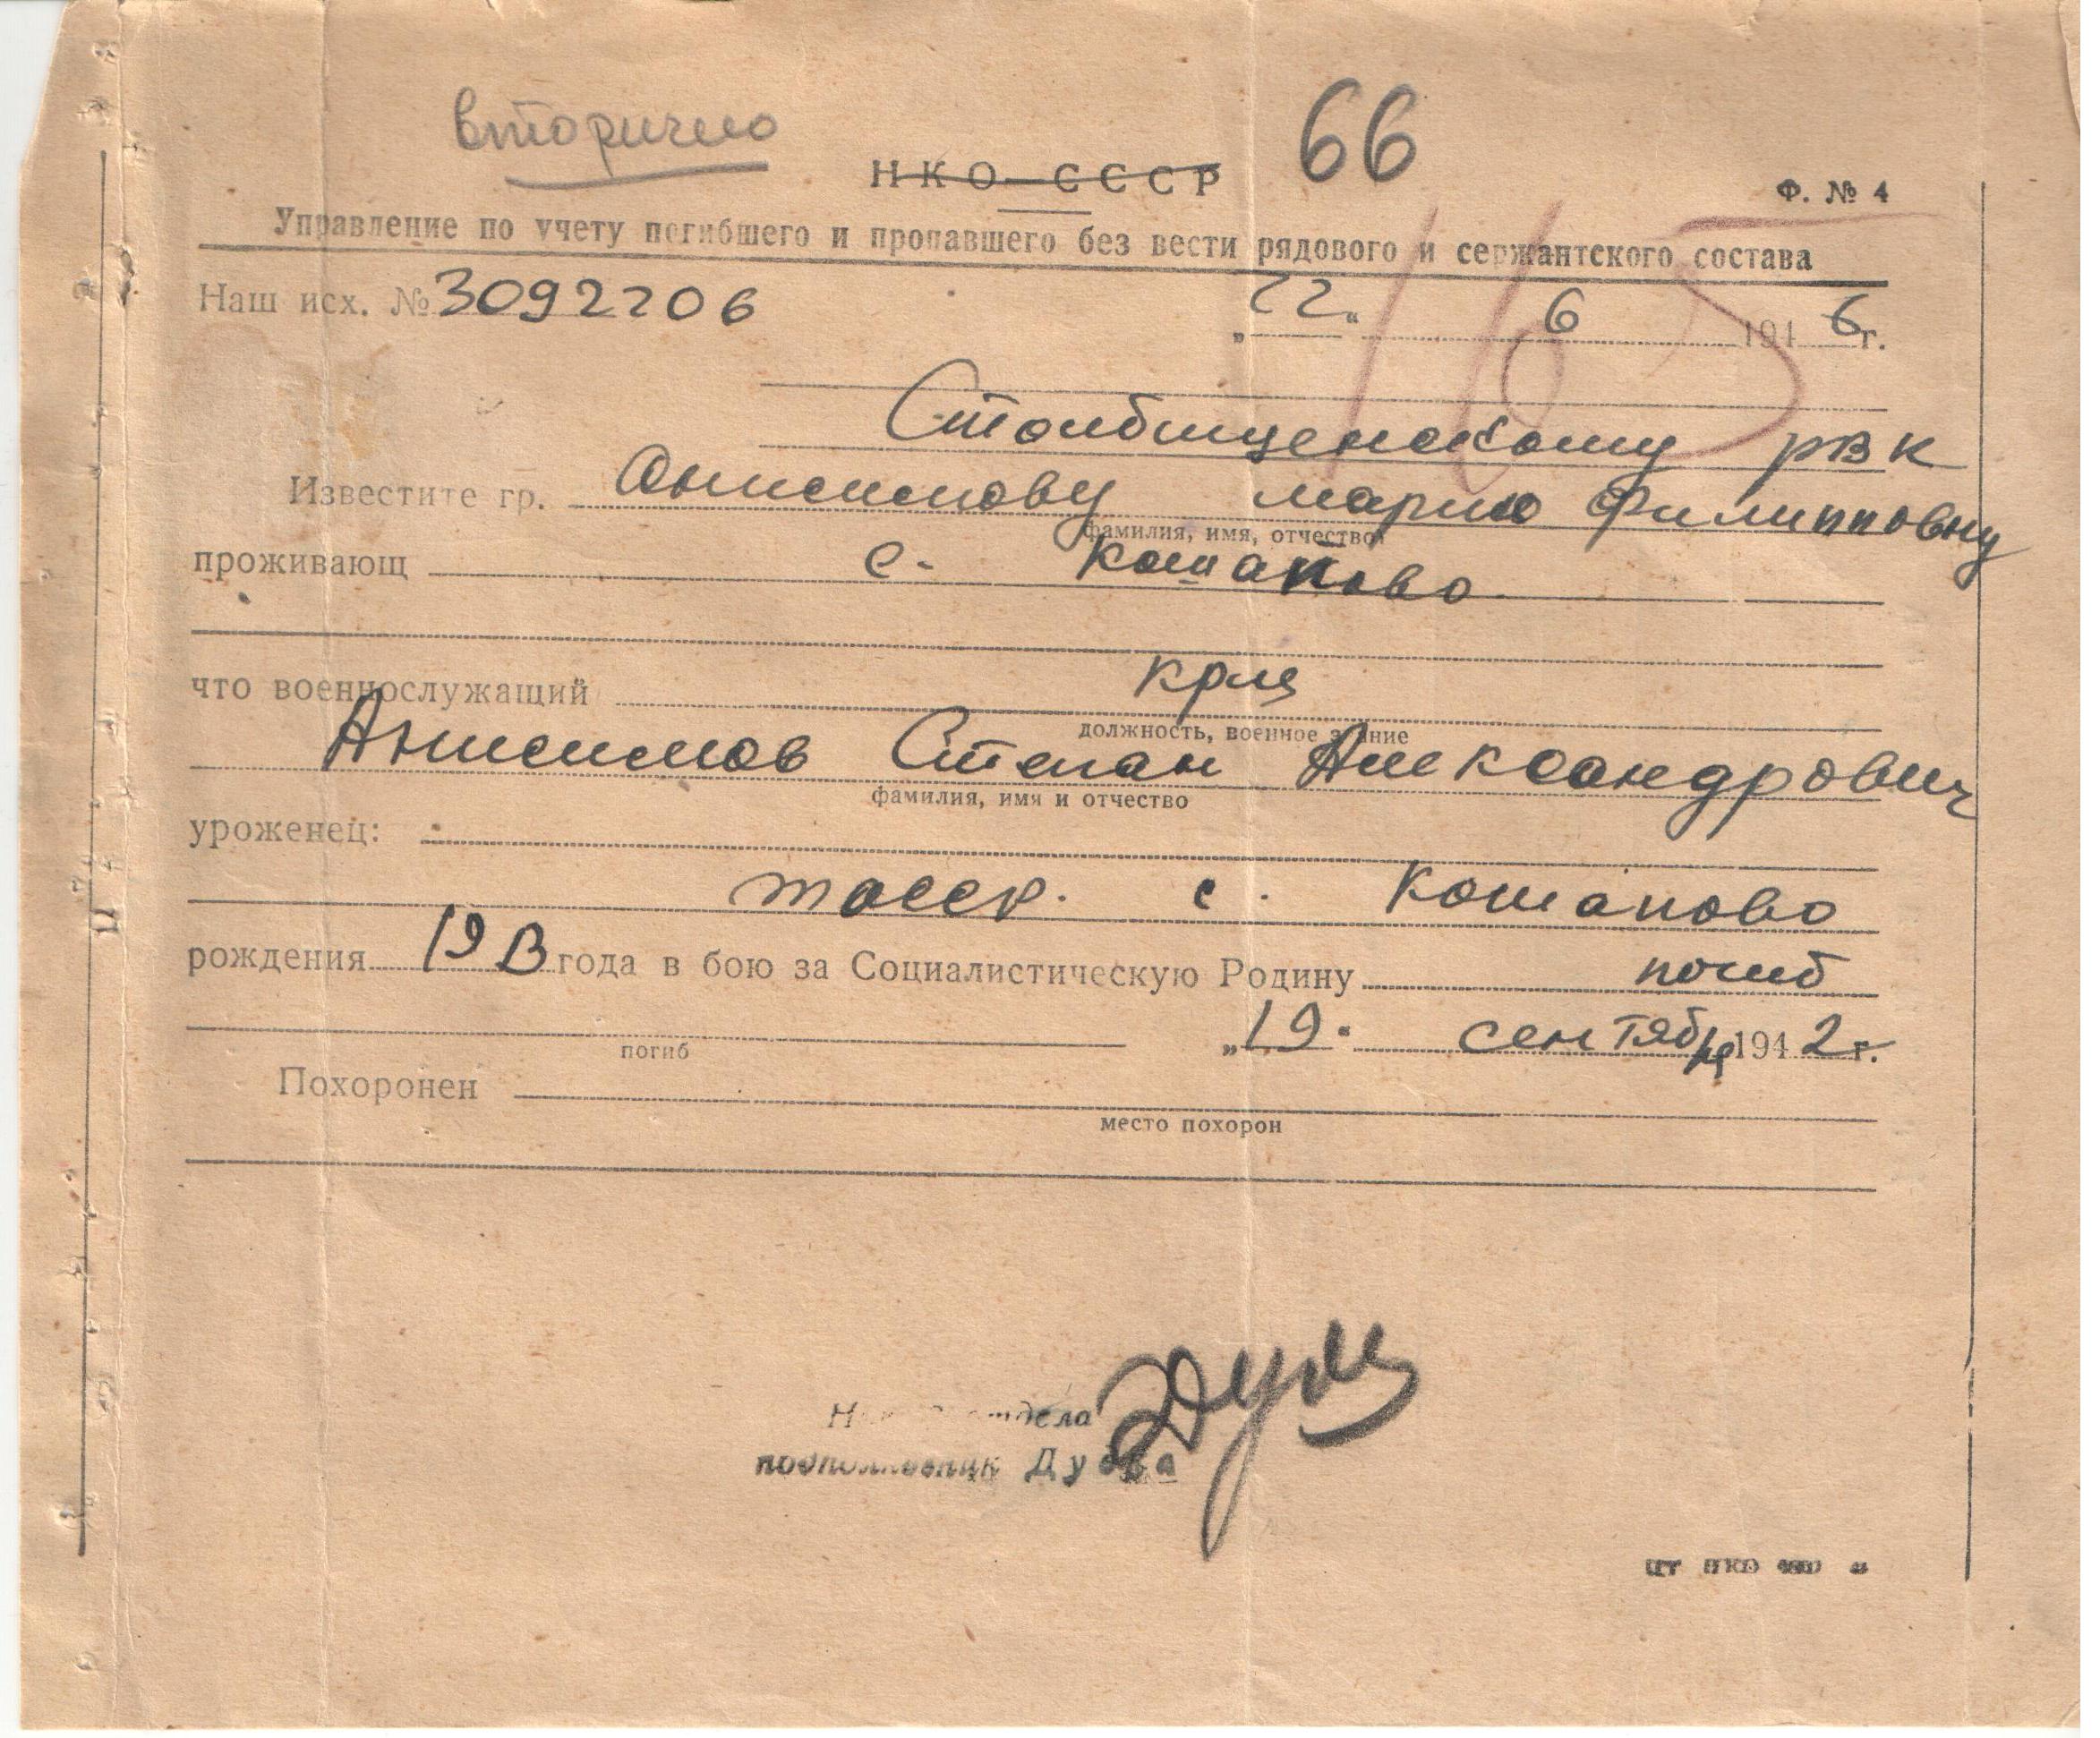 вторично
66
НКО СССР
Ф. № 4
Управление по учету погибшего и пропавшего без вести рядового и сержантского состава
165
Наш исх. № 3092206 „22“ 6 1946 г.
Столбищенскому рвк
Известите гр. Анисимову Марию Филипповну
фамилия, имя, отчество
проживающ с. Кощаково
что военнослужащий крц
должность, военное звание
Анисимов Степан Александрович
фамилия, имя и отчество
уроженец:
тасср. с. Кощаково
рождения 1913 года в бою за Социалистическую Родину погиб
„19“ сентября 1942 г.
погиб
Похоронен
место похорон
отдела
подполковник